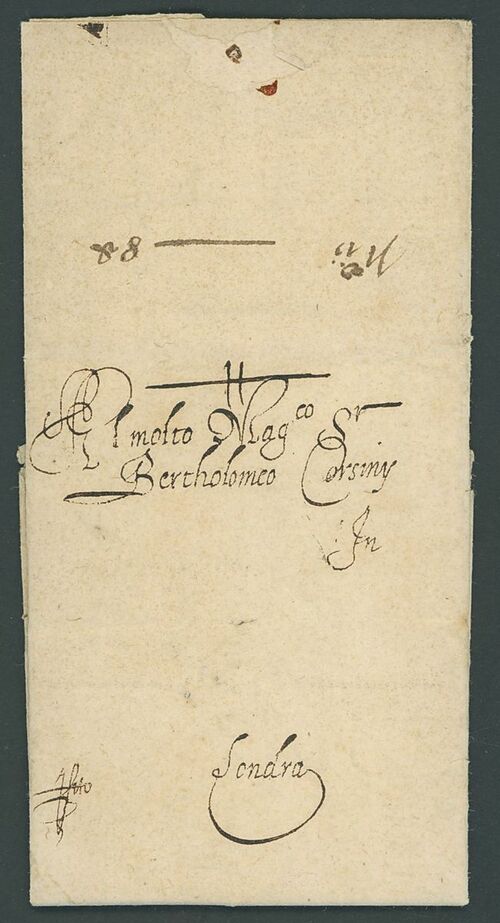 Al molto Mag.co Sr
Bertholomeo Corsiny
In
Londra